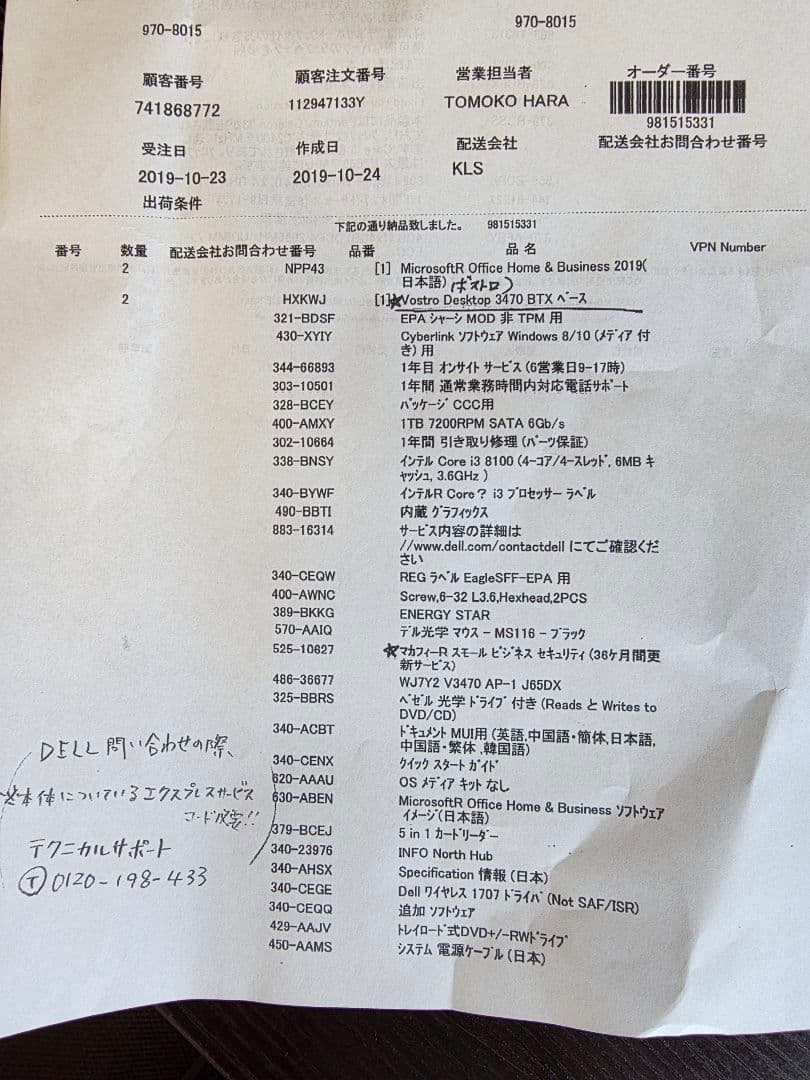 970-8015
970-8015
顧客番号 顧客注文番号 営業担当者 オーダー番号
741868772 112947133Y TOMOKO HARA
981515331
受注日 作成日 配送会社 配送会社お問合わせ番号
2019-10-23 2019-10-24 KLS
出荷条件
下記の通り納品致しました。 981515331
番号 数量 配送会社お問合わせ番号 品番 品名 VPN Number
2 NPP43 [1] MicrosoftR Office Home & Business 2019(
日本語) ばストロ
2 HXKWJ [1] ★Vostro Desktop 3470 BTX ベース
321-BDSF EPA シャーシ MOD 非 TPM 用
430-XYIY Cyberlink ソフトウェア Windows 8/10 (メディア 付
き) 用
344-66893 1年目 オンサイト サービス (6営業日9-17時)
303-10501 1年間 通常業務時間内対応電話サポート
328-BCEY パッケージ CCC用
400-AMXY 1TB 7200RPM SATA 6Gb/s
302-10664 1年間 引き取り修理 (パーツ保証)
338-BNSY インテル Core i3 8100 (4-コア/4-スレッド, 6MB キ
ャッシュ, 3.6GHz )
340-BYWF インテルR Core? i3 プロセッサー ラベル
490-BBTI 内蔵 グラフィックス
883-16314 サービス内容の詳細は
//www.dell.com/contactdell にてご確認くだ
さい
340-CEQW REG ラベル EagleSFF-EPA 用
400-AWNC Screw,6-32 L3.6,Hexhead,2PCS
389-BKKG ENERGY STAR
570-AAIQ デル光学 マウス - MS116 - ブラック
525-10627 ★マカフィーR スモール ビジネス セキュリティ (36ケ月間更
新サービス)
486-36677 WJ7Y2 V3470 AP-1 J65DX
325-BBRS ベゼル 光学 ドライブ 付き (Reads と Writes to
DVD/CD)
340-ACBT ドキュメント MUI用 (英語,中国語・簡体,日本語,
中国語・繁体 ,韓国語)
340-CENX クイック スタート ガイド
620-AAAU OS メディア キット なし
630-ABEN MicrosoftR Office Home & Business ソフトウェア
イメージ(日本語)
379-BCEJ 5 in 1 カードリーダー
340-23976 INFO North Hub
340-AHSX Specification 情報 (日本)
340-CEGE Dell ワイヤレス 1707 ドライバ (Not SAF/ISR)
340-CEQQ 追加 ソフトウェア
429-AAJV トレイロード式DVD+/-RWドライブ
450-AAMS システム 電源ケーブル (日本)
DELL 問い合わせの際、
※本体についているエクスプレスサービス
コード必要!!
テクニカルサポート
Ⓣ0120-198-433